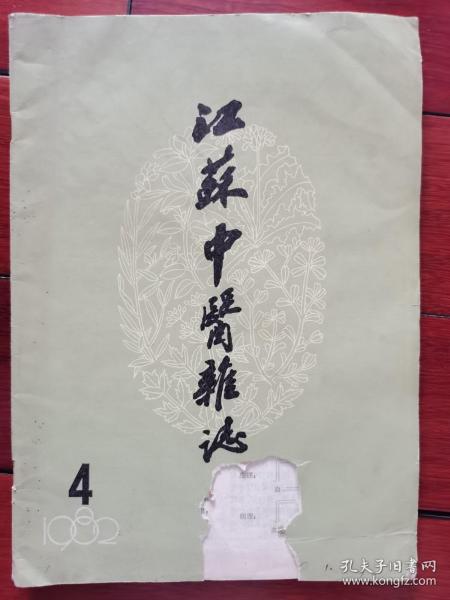 江蘇中醫雜誌
4
1982
孔夫子旧书网
www.kongfz.com